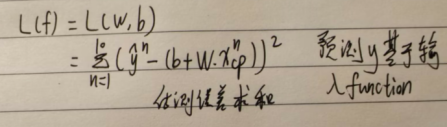 L(f) = L(w, b)
= Σ_{n=1}^{10} (ŷ^n - (b + W·x_{cp}^n))²
预测y基于输
入function
估测误差求和